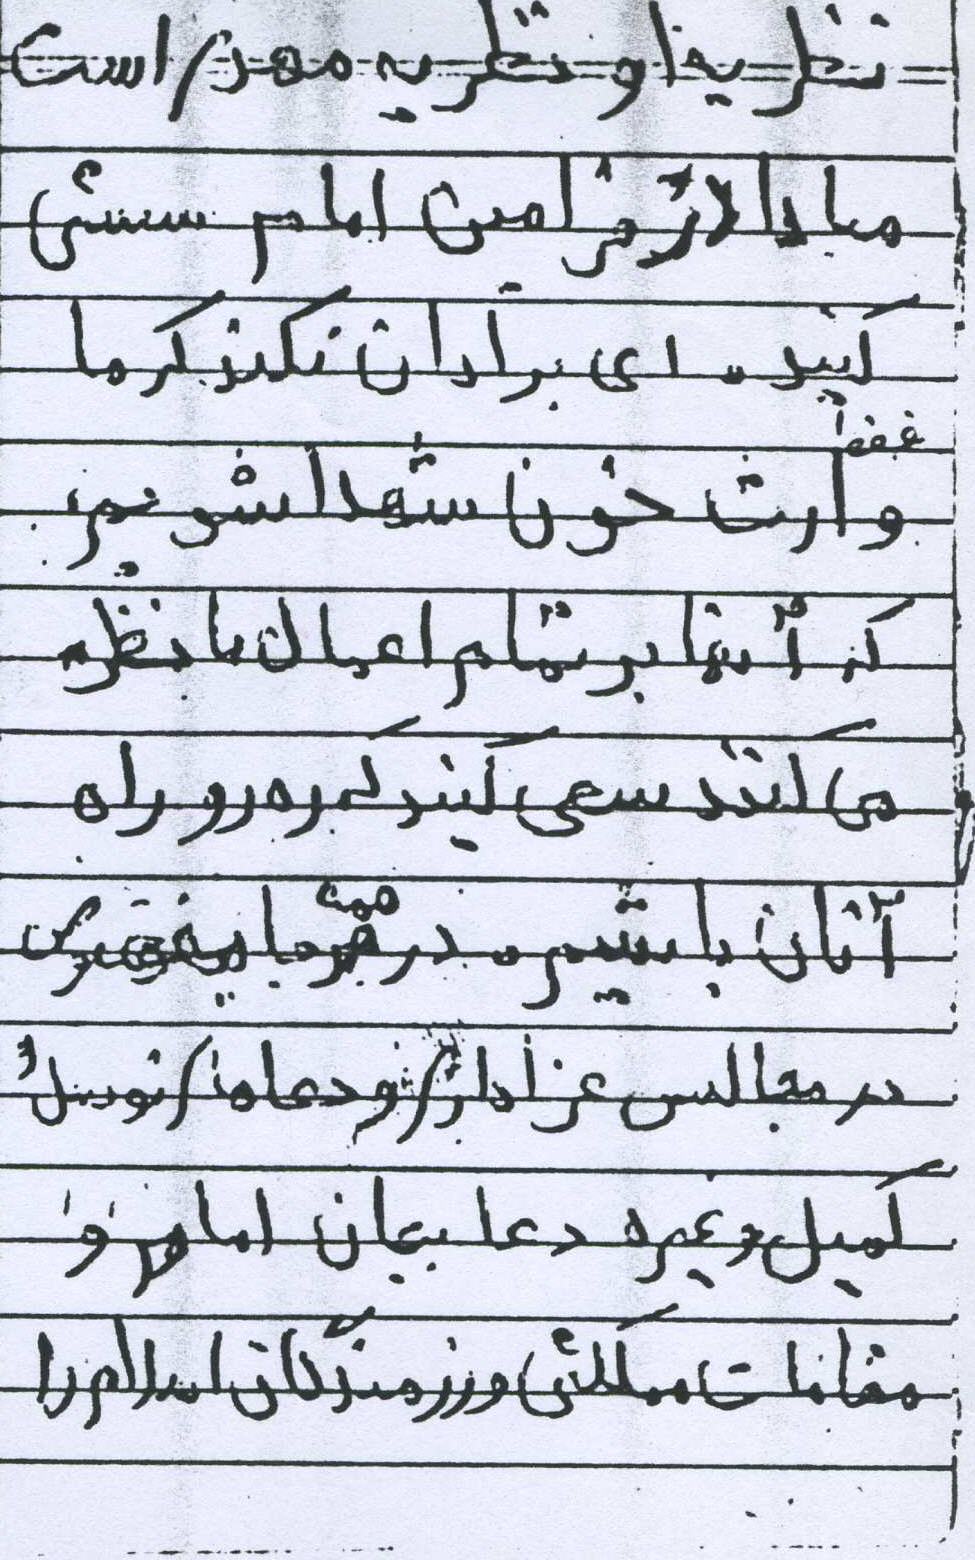 نظریه او نظریه مهدی است
مبادا لازم امین امام ستسی
کنید. ای برادران نکند که ما
فقط
وارث خون شهدا شویم
که آنها بر تمام اعمال ما نظره
می کنند سعی کنید که ره رو راه
آنان باشیم. در همه
در مجالس عزاداری و دعاها توسل و
کمیل و غیره دعا بجان امام و
مقامات مملکتی و رزمندگان اسلام را